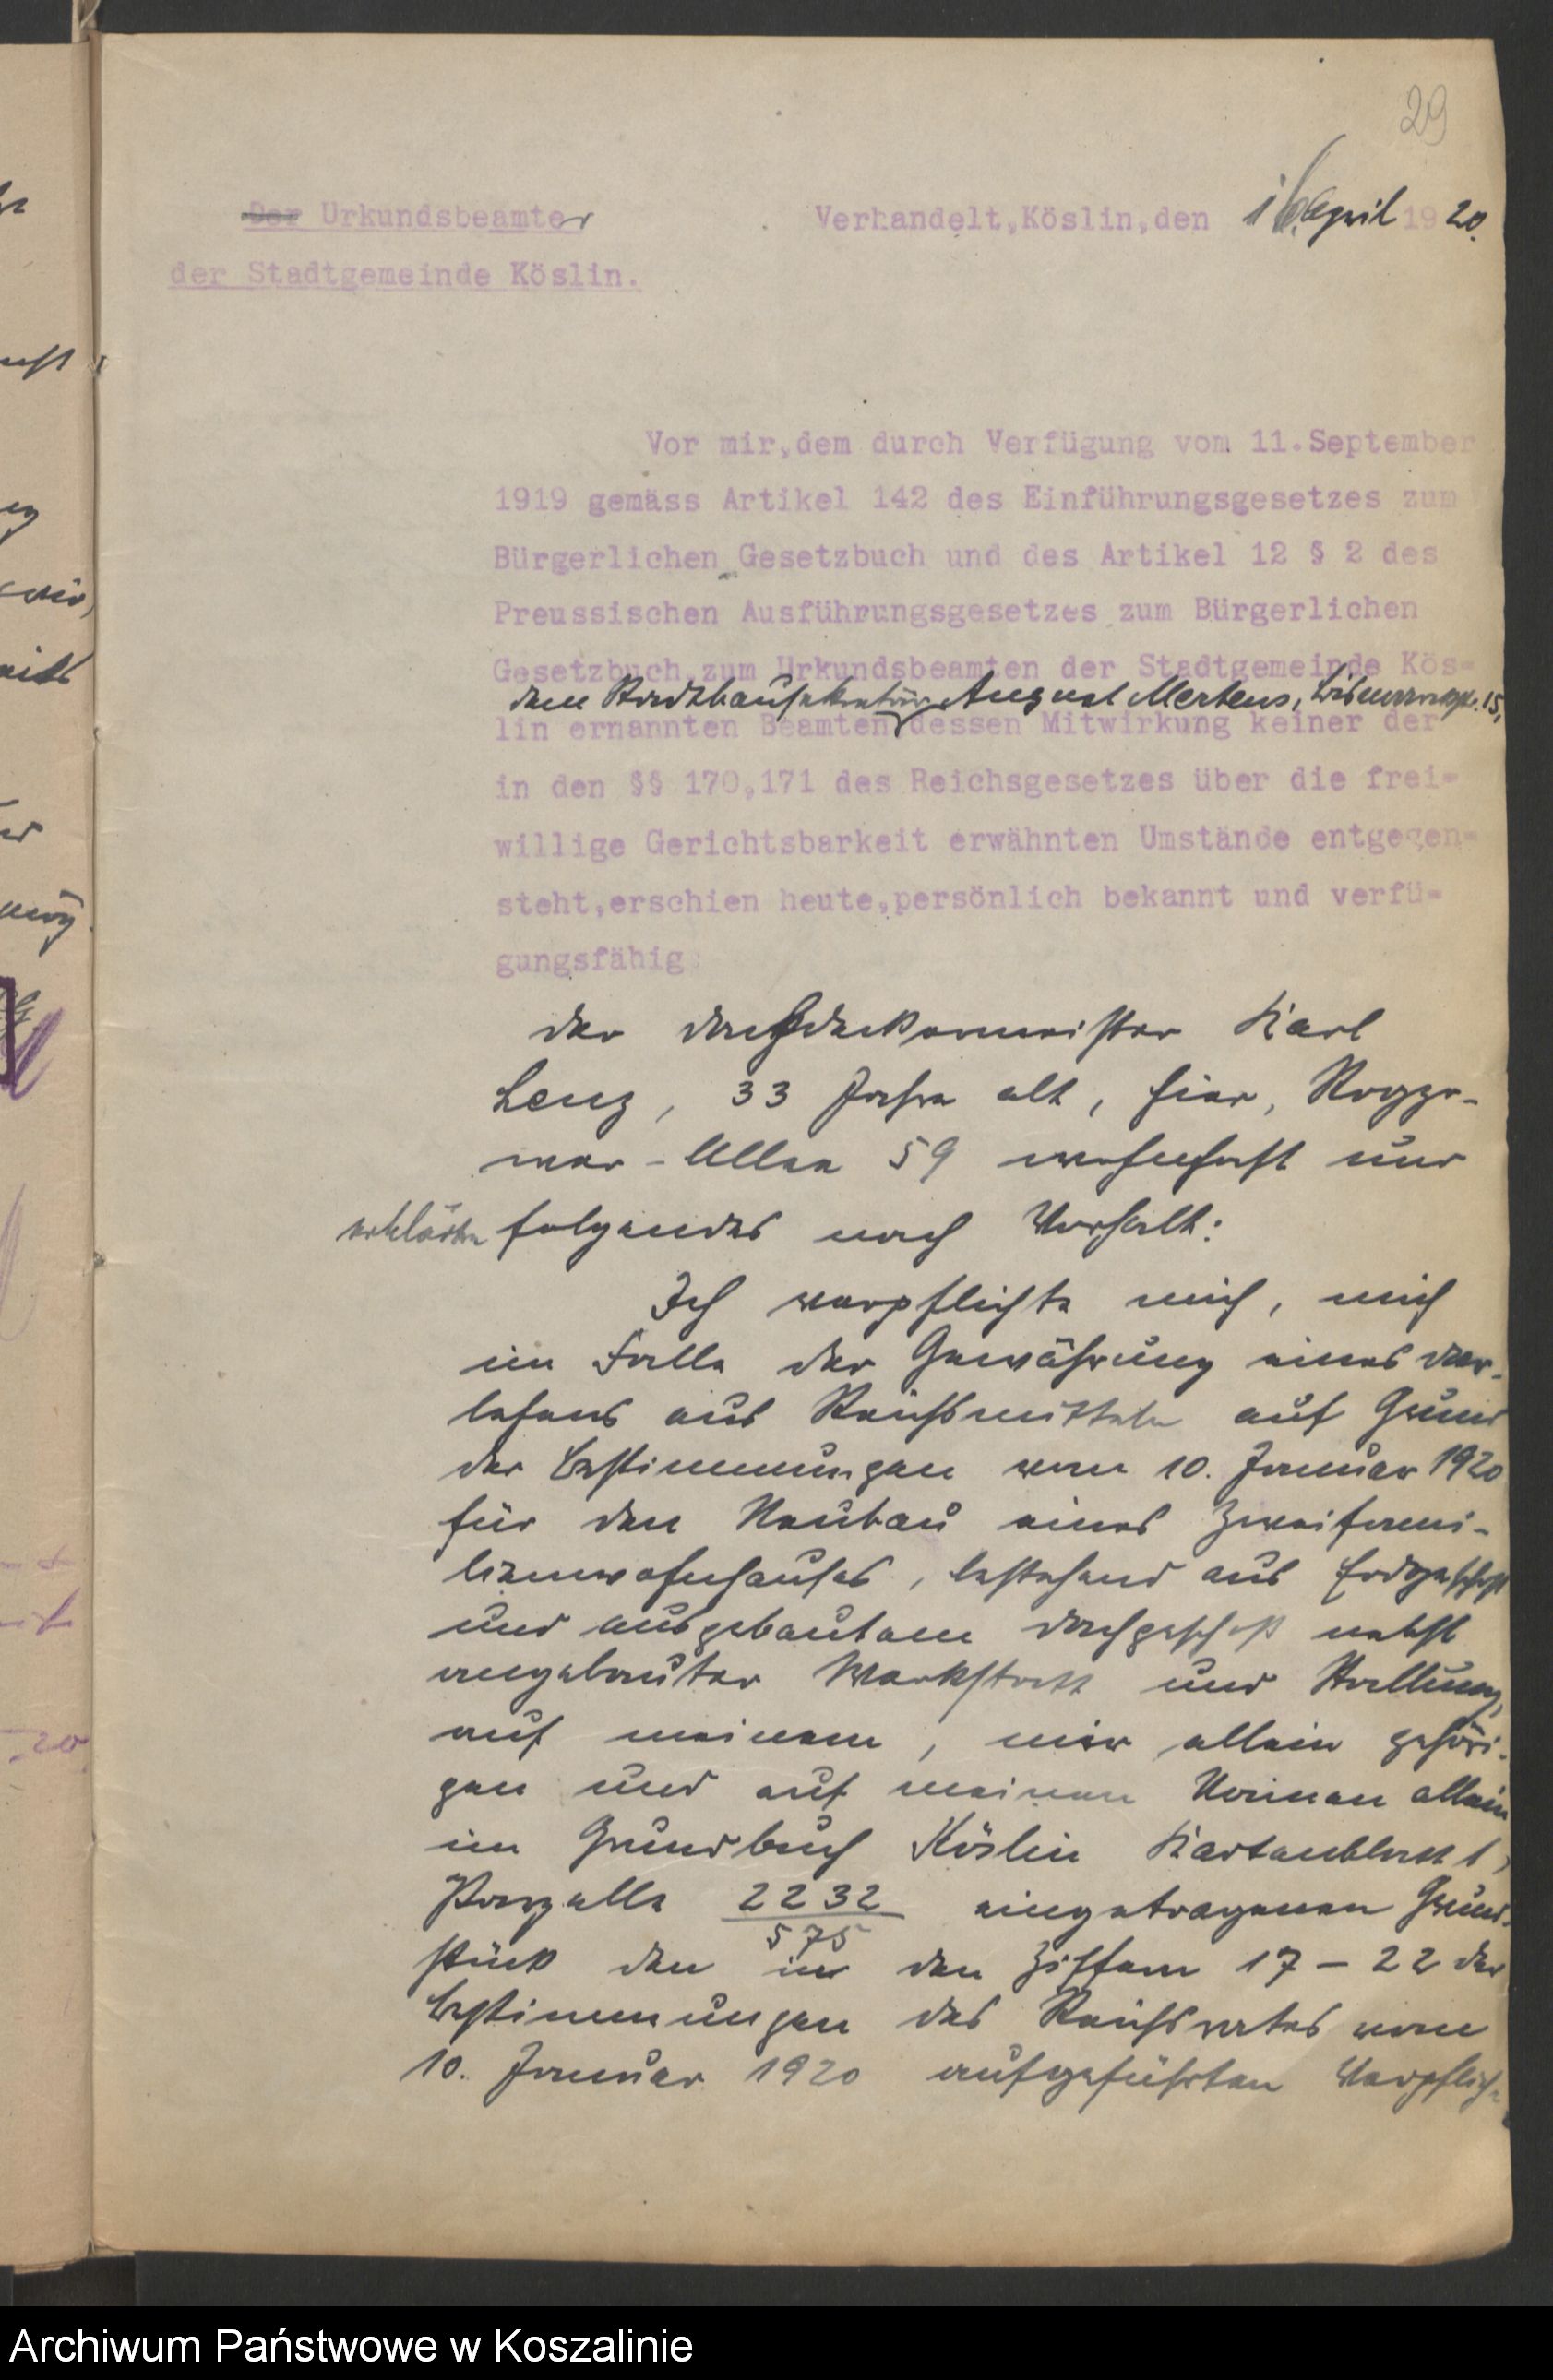 29
Der Urkundsbeamter
Verhandelt, Köslin, den 16. April 1920.
der Stadtgemeinde Köslin.
Vor mir, dem durch Verfügung vom 11. September
1919 gemäss Artikel 142 des Einführungsgesetzes zum
Bürgerlichen Gesetzbuch und des Artikel 12 § 2 des
Preussischen Ausführungsgesetzes zum Bürgerlichen
Gesetzbuch, zum Urkundsbeamten der Stadtgemeinde Kös=
dem Stadtbausekretär August Mertens, Bismarckstr. 15,
lin ernannten Beamten, dessen Mitwirkung keiner der
in den §§ 170, 171 des Reichsgesetzes über die frei=
willige Gerichtsbarkeit erwähnten Umstände entgegen=
steht, erschien heute, persönlich bekannt und verfü=
gungsfähig:
der Dachdeckermeister Karl
Lenz, 33 Jahre alt, hier, Rogzo-
wer-Allee 59 wohnhaft und
erklärte folgendes nach Vorhalt:
Ich verpflichte mich, mich
im Falle der Gewährung eines Dar-
lehens aus Reichsmitteln auf Grund
der Bestimmungen vom 10. Januar 1920
für den Neubau eines Zweifami-
lienwohnhauses, bestehend aus Erdgeschoß
und ausgebautem Dachgeschoß nebst
angebauter Werkstatt und Stallung,
auf meinem, mir allein gehöri-
gen und auf meinen Namen allein
im Grundbuch Köslin Kartenblatt 1,
Parzelle 2232
575
eingetragenen Grund-
stück den in den Ziffern 17 – 22 der
Bestimmungen des Reichsrates vom
10. Januar 1920 aufgeführten Verpflich-
Archiwum Państwowe w Koszalinie